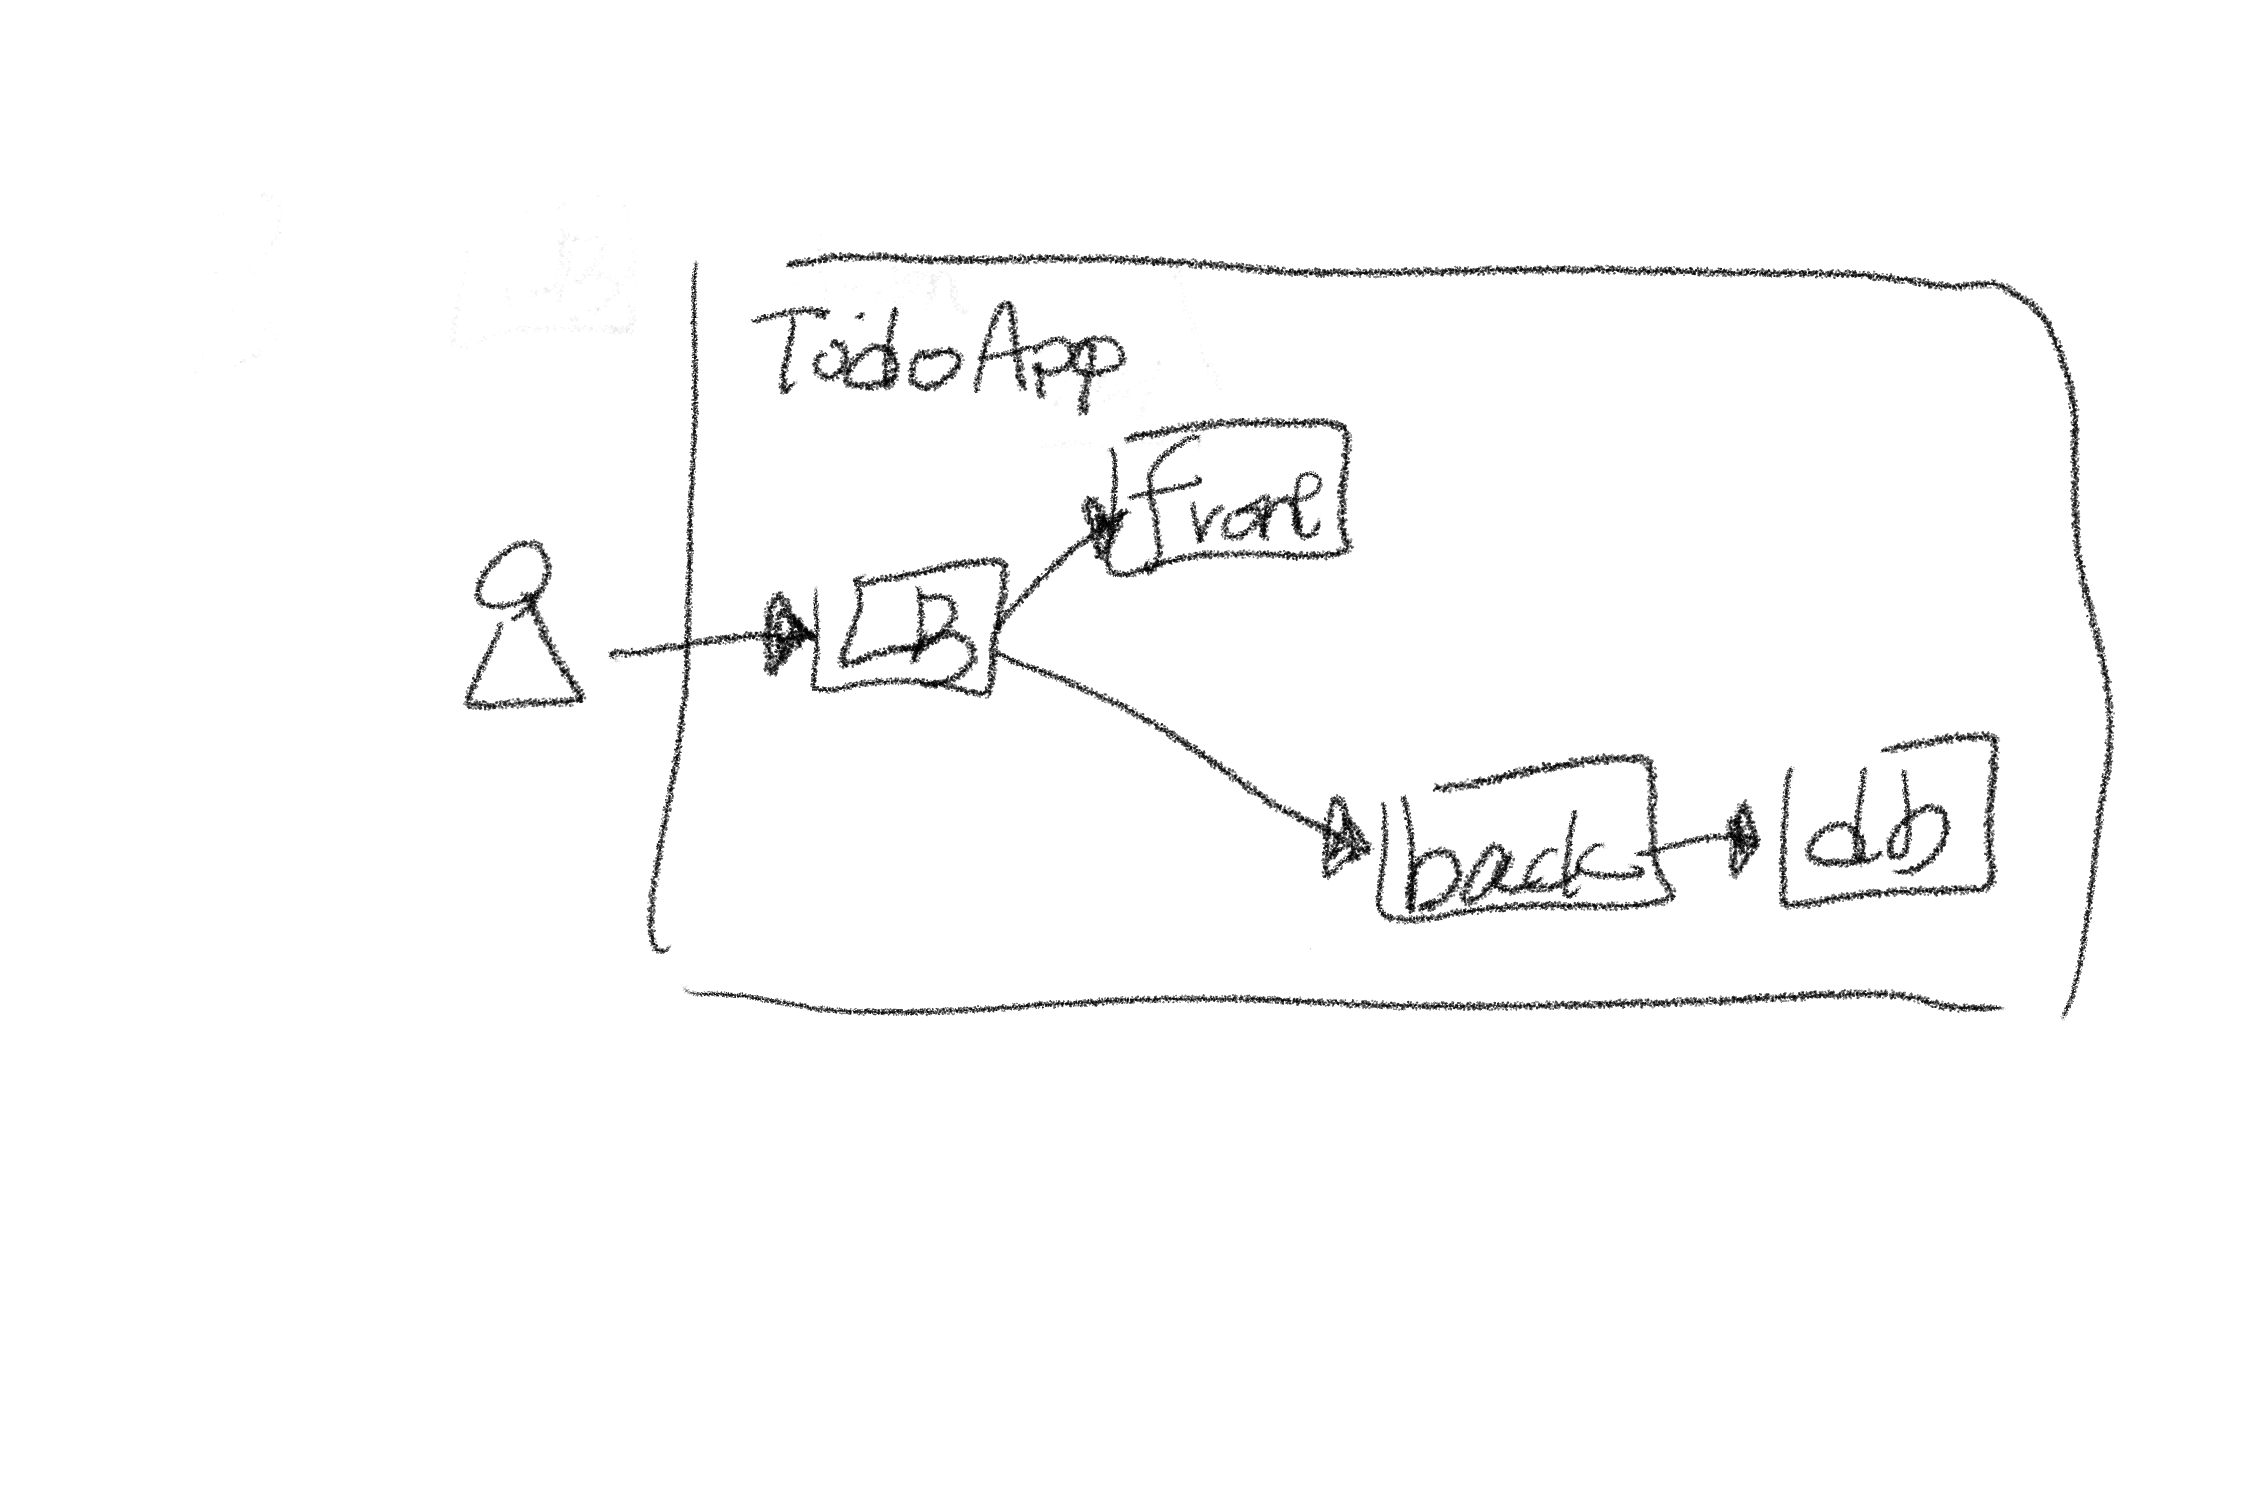 Todo App
front
LB
back
db